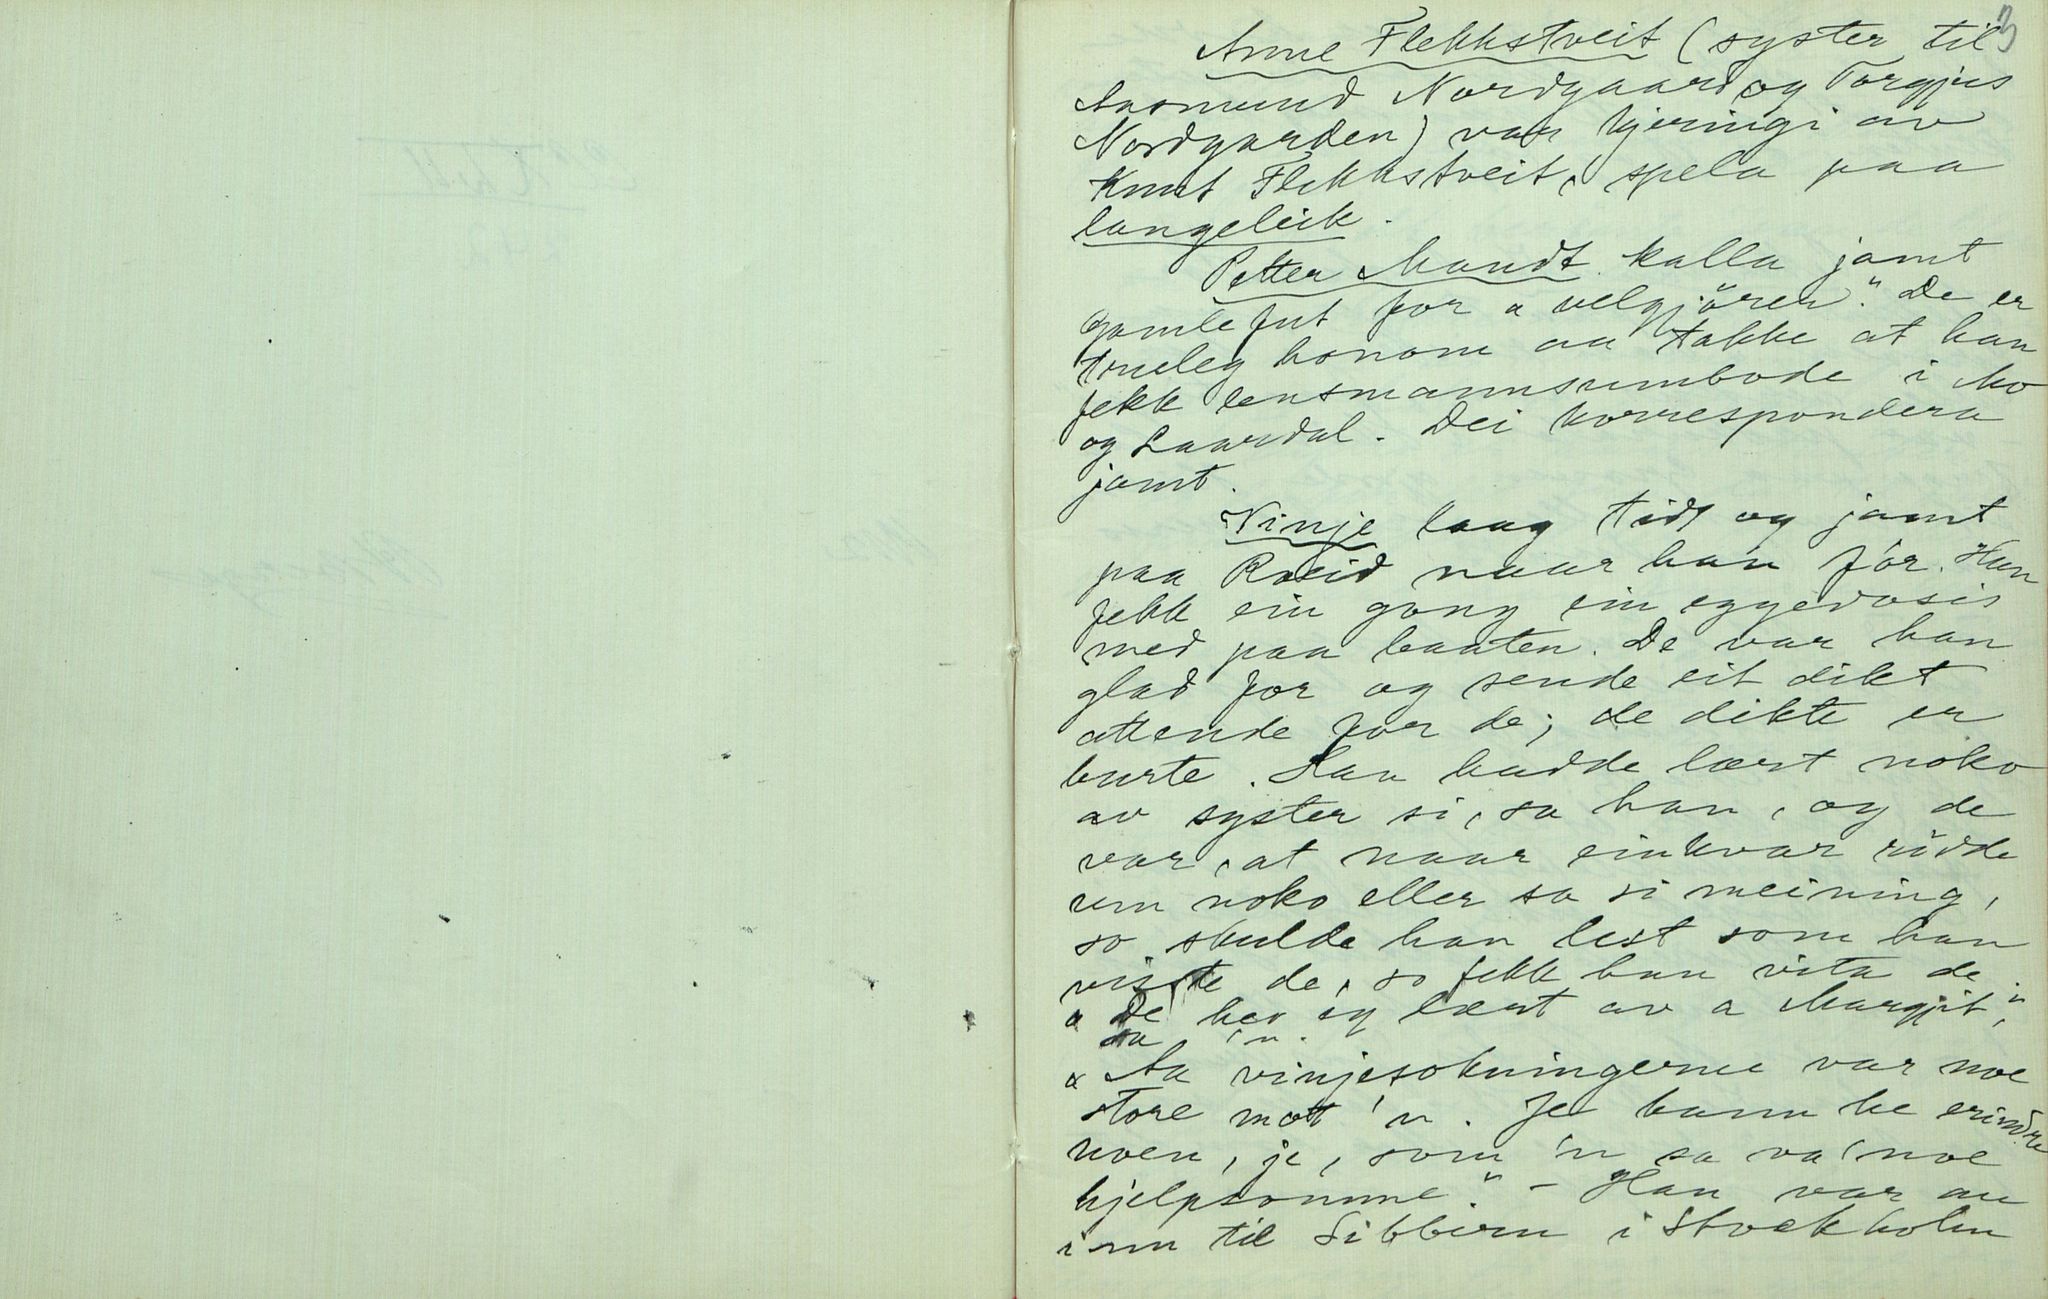 3
Anne Flekkstveit (syster til
Aasmund Nordgaard og Torgjus
Nordgarden) var kjeringi av
Knut Flekkstveit, spela paa
langeleik.
Petter Mandt kalla jamt
gamlefut for "velgjören". De er
truleg honom aa takke at han
fekk lensmannsumbode i Mo
og Laardal. Dei korrespondera
jamt.
Vinje laag tidt og jamt
paa Roeid naar han för. Han
fekk ein gong ein eggedosis
med paa baaten. De var han
glad for og sende eit dikt
attende for de; de dikte er
burte. Han hadde lært noko
av syster si, sa han, og de
var, at naar einkvar rödde
um noko eller sa si meining,
so skulde han lest som han
visste de, so fekk han vita de.
"De hev eg lært av a Margjit",
sa 'n.
"Aa vinjesokningerne var noe
store mott 'n. Je kann ke erindre
noen, je, som 'n sa va' noe
hjelpsomme." – Han var au
inn til Sibbern i Stockholm